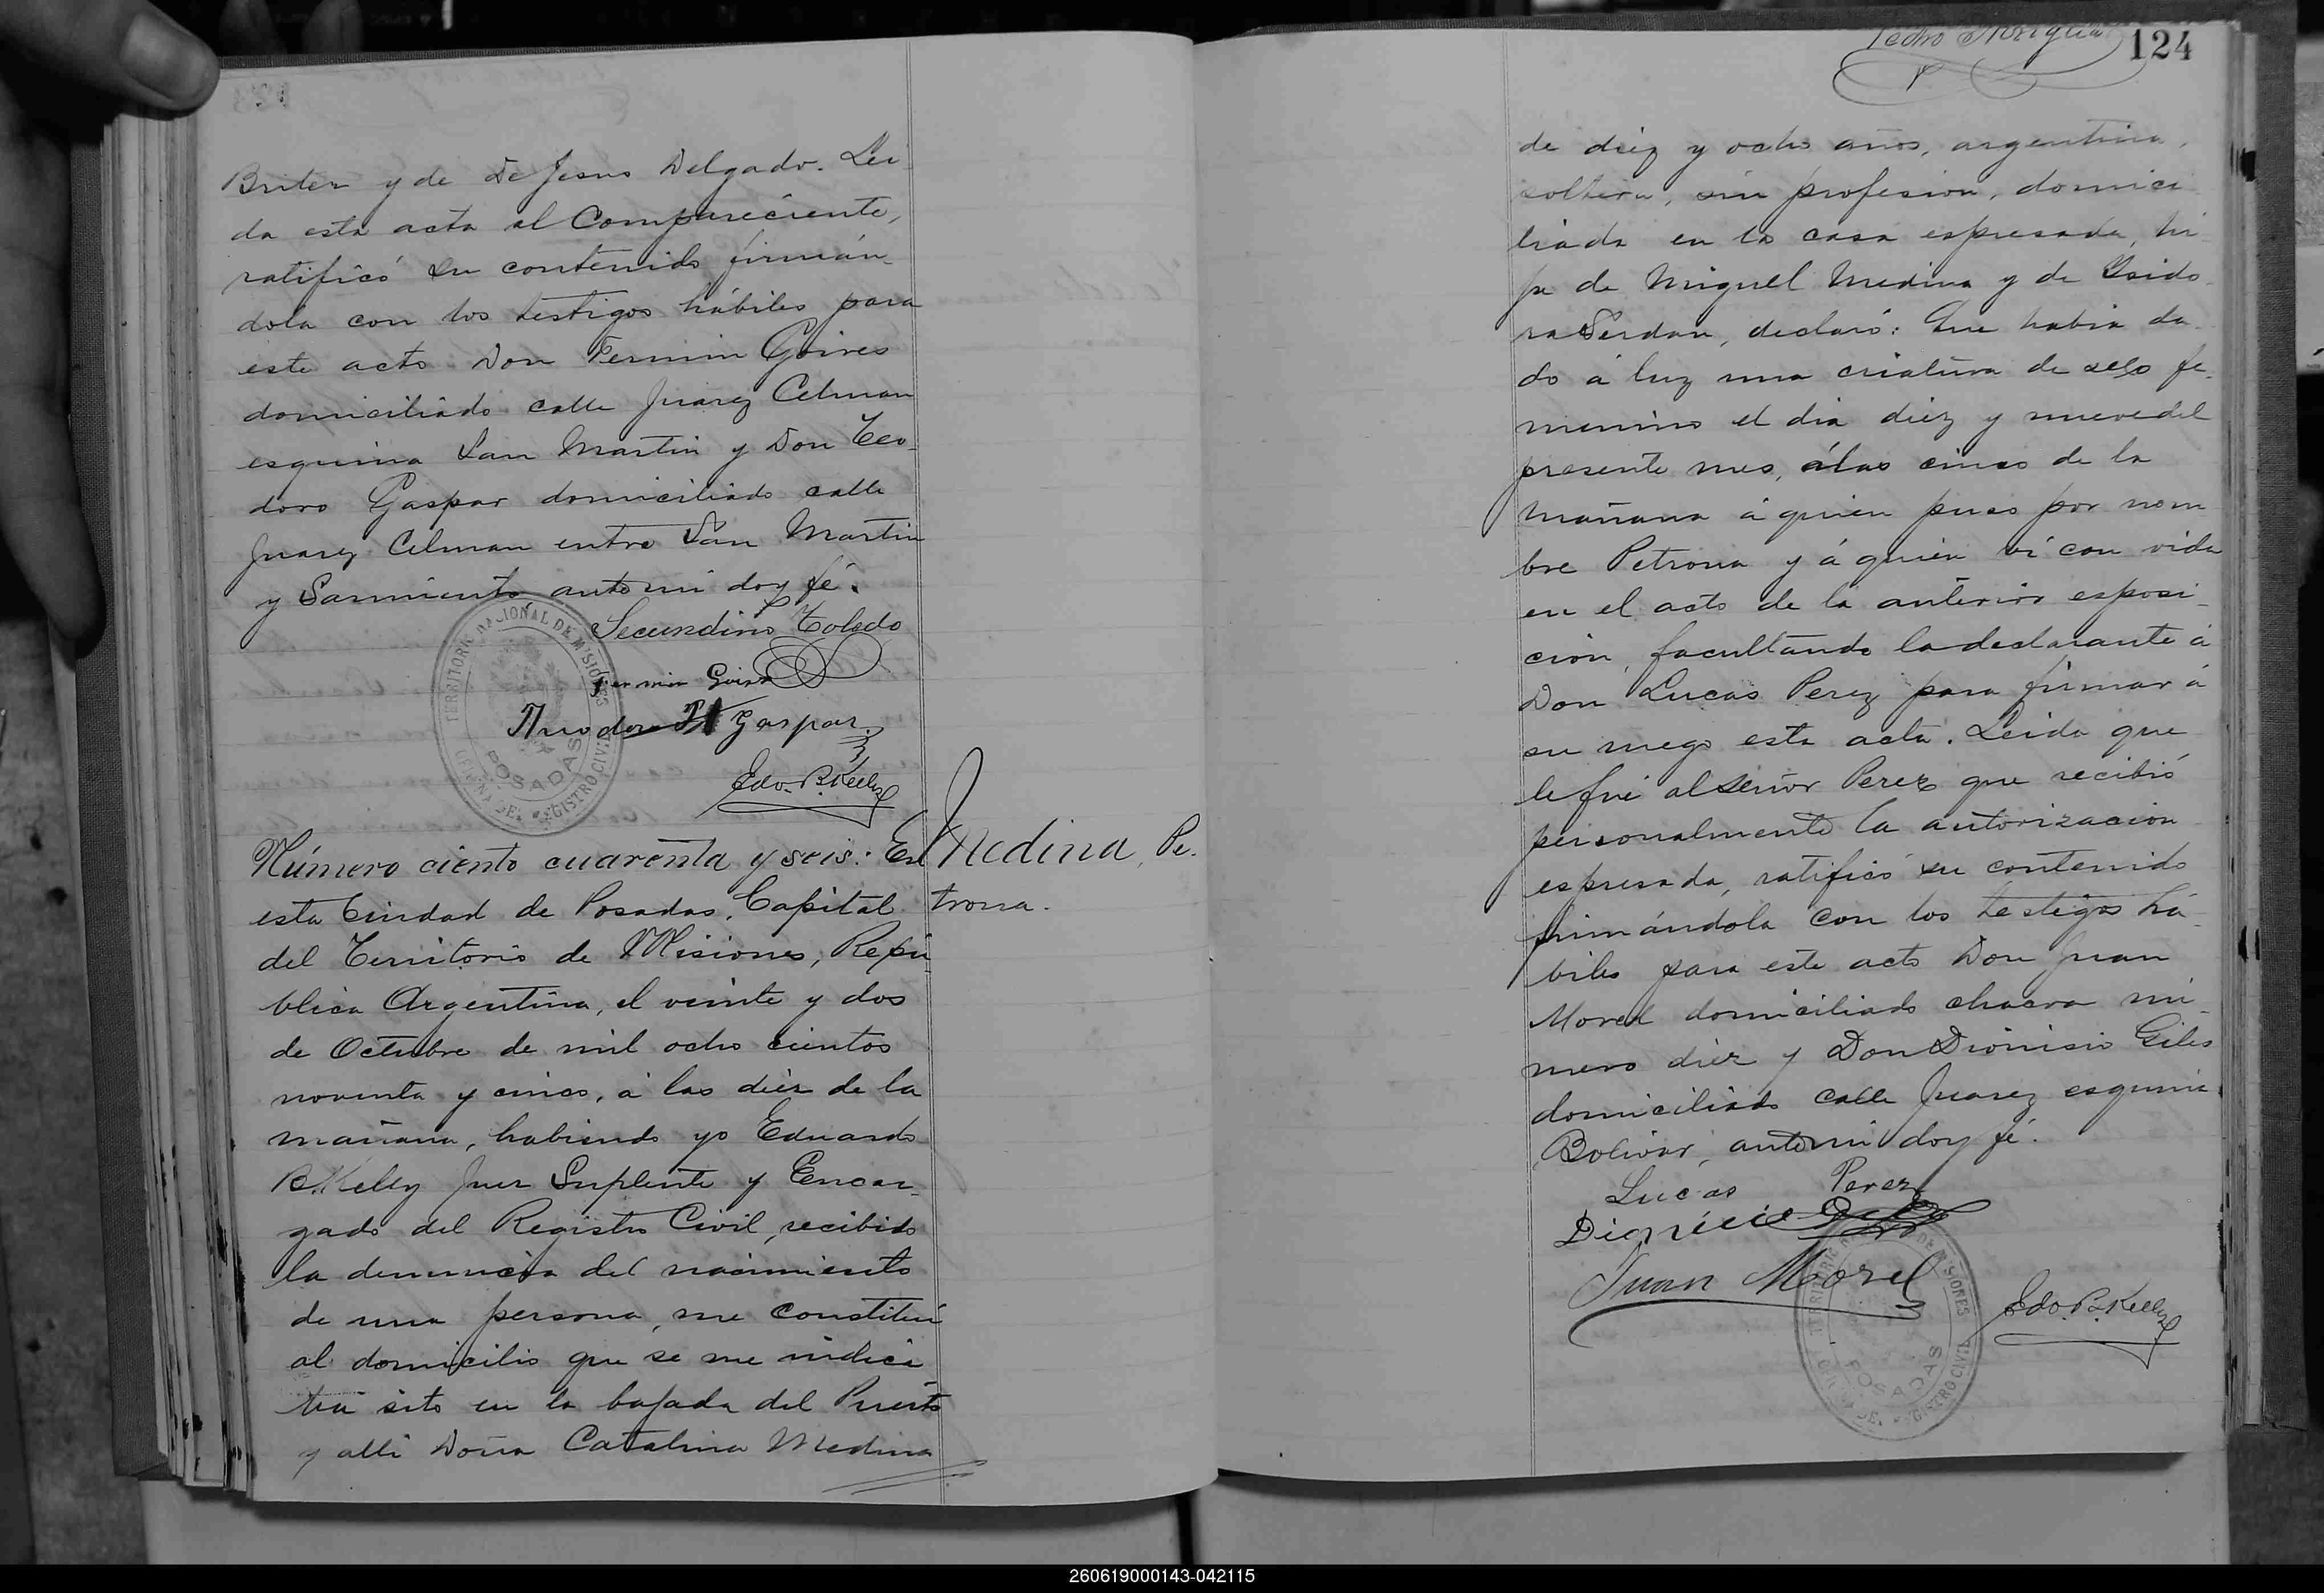 Briter y de De Jesus Delgado. Lei
da esta acta al Compareciente,
ratificó su contenido firmán-
dola con los testigos hábiles para
este acto Don Fermin Goires
domiciliado calle Juarez Celman
esquina San Martin y Don Teo-
doro Gaspar domiciliado calle
Juarez Celman entre San Martin
y Sarmiento ante mi doy fé.
Secundino Toledo
Fermin Goires
Gaspar
Edo. B. Kelly
TERRITORIO NACIONAL DE MISIONES
POSADAS
OFICINA DEL REGISTRO CIVIL
Número ciento cuarenta y seis: En
Medina, Pe-
trona.
esta Ciudad de Posadas, Capital
del Territorio de Misiones, Repú
blica Argentina, el veinte y dos
de Octubre de mil ocho cientos
noventa y cinco, á las diez de la
mañana, habiendo yo Eduardo
B. Kelly Juez Suplente y Encar-
gado del Registro Civil, recibido
la denuncia del nacimiento
de una persona, me constituí
al domicilio que se me indicó
sito en la bajada del Puerto
y alli Doña Catalina Medina
124
Pedro
de diez y ocho años, argentina,
soltera, sin profesion, domici
liada en la casa espresada, hi
ja de Miguel Medina y de Isido
ra Serdan, declaró: Que habia da
do á luz una criatura de sexo fe-
menino el dia diez y nueve del
presente mes, á las cinco de la
mañana á quien puso por nom
bre Petrona y á quien ví con vida
en el acto de la anterior esposi-
cion, facultando la declarante á
Don Lucas Perez para firmar á
su ruego esta acta. Leida que
le fué al señor Perez que recibió
personalmente la autorizacion
espresada, ratificó su contenido
firmándola con los testigos há-
biles para este acto Don Juan
Morel domiciliado chacra nú-
mero diez y Don Dionisio Giles
domiciliado calle Juarez esquina
Bolivar, ante mi doy fé.
Lucas Perez
Dionicio
Juan Morel
Edo. B. Kelly
TERRITORIO NACIONAL DE MISIONES
POSADAS
OFICINA DEL REGISTRO CIVIL
260619000143-042115